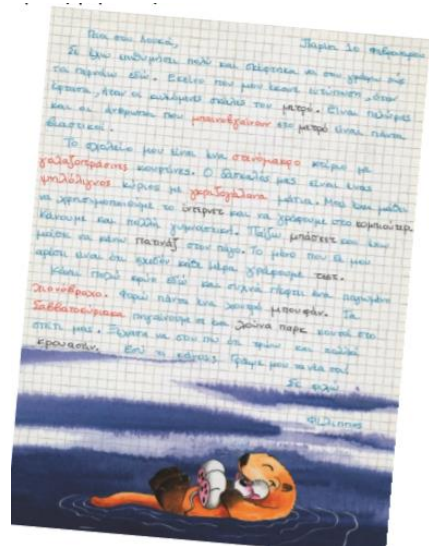 Γεια σου Λουκά, Παρίσι 10 Φεβρουαρίου
Σε έχω επιθυμήσει πολύ και σκέφτηκα να σου γράψω πώς
τα περνάω εδώ. Εκείνο που μου έκανε εντύπωση, όταν
έφτασα, ήταν οι κυλιόμενες σκάλες του μετρό. Είναι πελώριες
και οι άνθρωποι που μπαινοβγαίνουν στο μετρό είναι πάντα
βιαστικοί.
Το σχολείο μου είναι ένα στενόμακρο κτίριο με
γαλαζοπράσινες κουρτίνες. Ο δάσκαλός μας είναι ένας
ψηλόλιγνος κύριος με γκριζογάλανα μάτια. Μας έχει μάθει
να χρησιμοποιούμε το ίντερνετ και να γράφουμε στο κομπιούτερ.
Κάνουμε και πολλή γυμναστική. Παίζω μπάσκετ και έχω
μάθει να κάνω πατινάζ στον πάγο. Το μόνο που δε μου
αρέσει είναι ότι σχεδόν κάθε μέρα γράφουμε τεστ.
Κάνει πολύ κρύο εδώ και συχνά πέφτει ένα παγωμένο
χιονόβροχο. Φοράω πάντα ένα χοντρό μπουφάν. Τα
Σαββατοκύριακα πηγαίνουμε σε ένα λούνα παρκ κοντά στο
σπίτι μας. Ξέχασα να σου πω ότι τρώω και πολλά
κρουασάν. Εσύ τι κάνεις; Γράψε μου τα νέα σου
Σε φιλώ
Φίλιππος